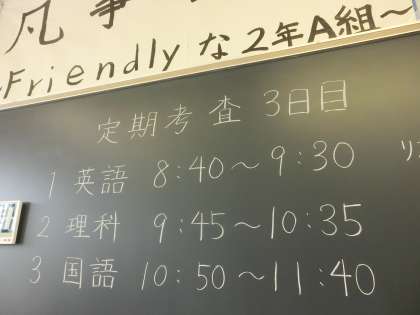 凡事
~Friendlyな2年A組~
定期考査 3日目
1 英語 8:40~9:30
2 理科 9:45~10:35
3 国語 10:50~11:40